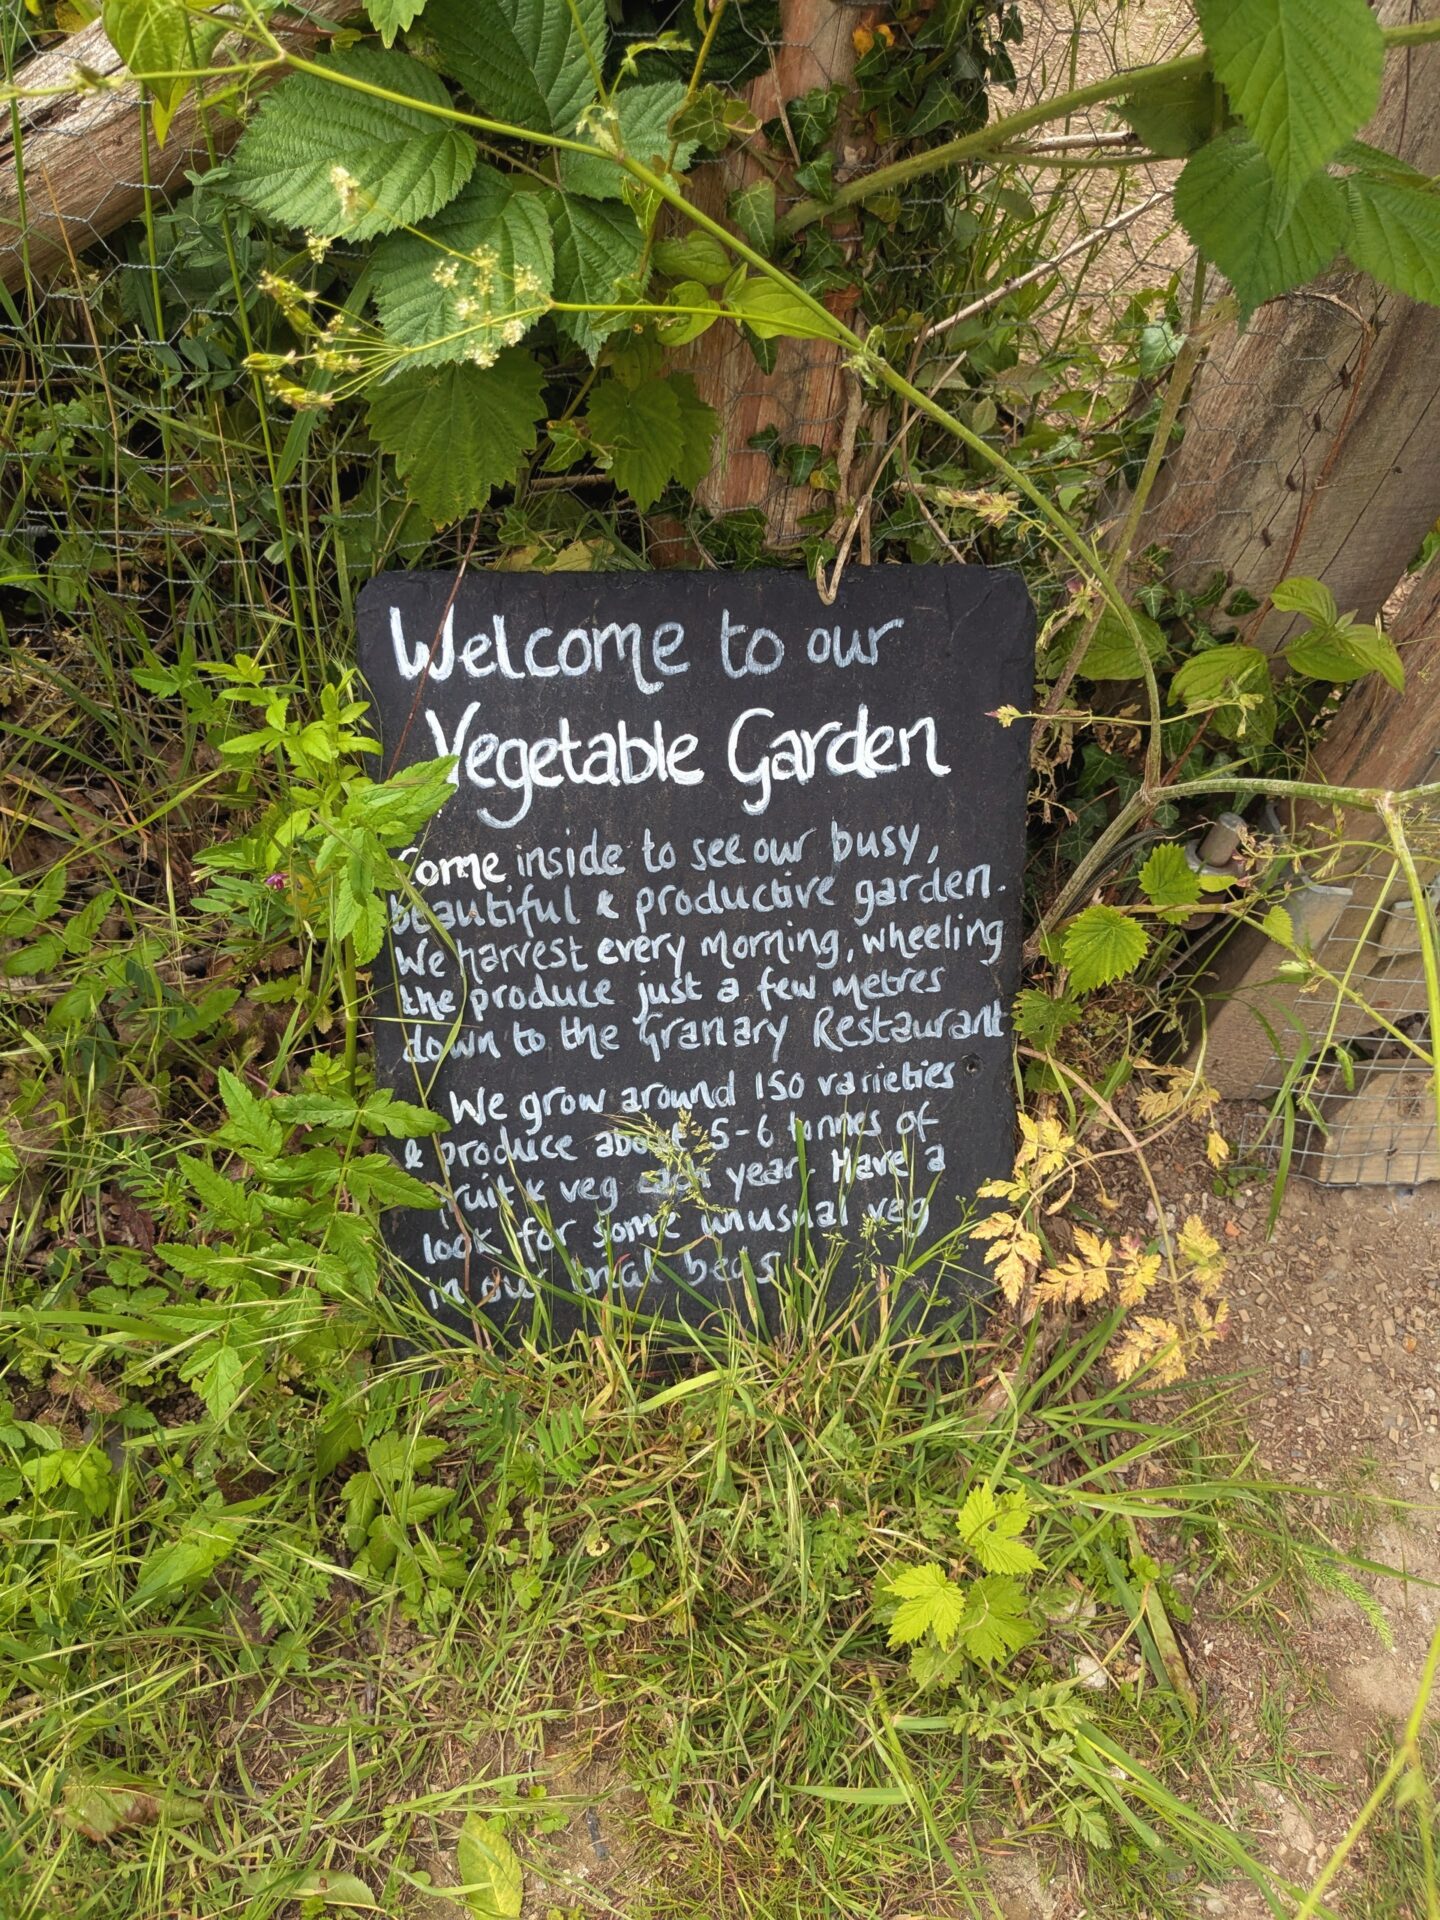 Welcome to our
Vegetable Garden
Come inside to see our busy,
beautiful & productive garden.
We harvest every morning, wheeling
the produce just a few metres
down to the Granary Restaurant
We grow around 150 varieties
& produce about 5-6 tonnes of
fruit & veg each year. Have a
look for some unusual veg
in our trial beds